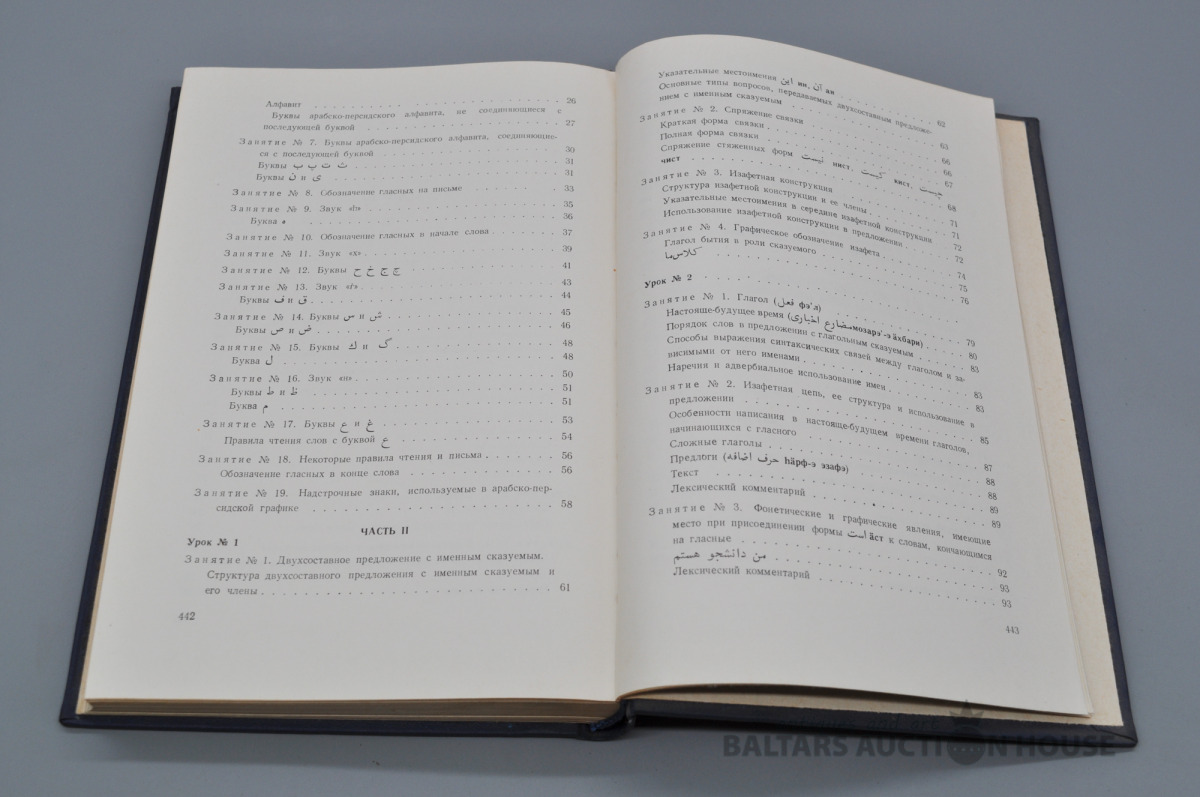 Алфавит . . . 26
Буквы арабско-персидского алфавита, не соединяющиеся с
последующей буквой . . . 27
Занятие № 7. Буквы арабско-персидского алфавита, соединяющие-
ся с последующей буквой . . . 30
Буквы ب پ ت ث . . . 31
Буквы ن и ی . . . 31
Занятие № 8. Обозначение гласных на письме . . . 33
Занятие № 9. Звук «h» . . . 35
Буква ه . . . 36
Занятие № 10. Обозначение гласных в начале слова . . . 37
Занятие № 11. Звук «х» . . . 39
Занятие № 12. Буквы ج چ خ ح . . . 41
Занятие № 13. Звук «ғ» . . . 43
Буквы ف и ق . . . 44
Занятие № 14. Буквы س и ش . . . 45
Буквы ص и ض . . . 46
Занятие № 15. Буквы ك и گ . . . 48
Буква ل . . . 48
Занятие № 16. Звук «н» . . . 50
Буквы ط и ظ . . . 51
Буква م . . . 51
Занятие № 17. Буквы ع и غ . . . 53
Правила чтения слов с буквой ع . . . 54
Занятие № 18. Некоторые правила чтения и письма . . . 56
Обозначение гласных в конце слова . . . 56
Занятие № 19. Надстрочные знаки, используемые в арабско-пер-
сидской графике . . . 58
ЧАСТЬ II
Урок № 1
Занятие № 1. Двухсоставное предложение с именным сказуемым.
Структура двухсоставного предложения с именным сказуемым и
его члены . . . 61
442
Указательные местоимения این ин, آن ан . . . 62
Основные типы вопросов, передаваемых двухсоставным предложе-
нием с именным сказуемым . . . 63
Занятие № 2. Спряжение связки . . . 66
Краткая форма связки . . . 66
Полная форма связки . . . 67
Спряжение стяженных форм نیست нист, کیست кист, چیست
чист . . . 68
Занятие № 3. Изафетная конструкция . . . 71
Структура изафетной конструкции и ее члены . . . 71
Указательные местоимения в середине изафетной конструкции . . . 72
Использование изафетной конструкции в предложении . . . 72
Занятие № 4. Графическое обозначение изафета . . . 74
Глагол бытия в роли сказуемого . . . 75
کلاس ما . . . 76
Урок № 2
Занятие № 1. Глагол (فعل фэ'л) . . . 79
Настояще-будущее время (مضارع اخباری мозарэ'-э äхбари) . . . 80
Порядок слов в предложении с глагольным сказуемым . . . 83
Способы выражения синтаксических связей между глаголом и за-
висимыми от него именами . . . 83
Наречия и адвербиальное использование имен . . . 83
Занятие № 2. Изафетная цепь, ее структура и использование в
предложении . . . 85
Особенности написания в настояще-будущем времени глаголов,
начинающихся с гласного . . . 87
Сложные глаголы . . . 88
Предлоги (حرف اضافه häрф-э эзафэ) . . . 88
Текст . . . 89
Лексический комментарий . . . 89
Занятие № 3. Фонетические и графические явления, имеющие
место при присоединении формы است äст к словам, кончающимся
на гласные . . . 92
من دانشجو هستم . . . 93
Лексический комментарий . . . 93
443
BALTARS AUCTION HOUSE